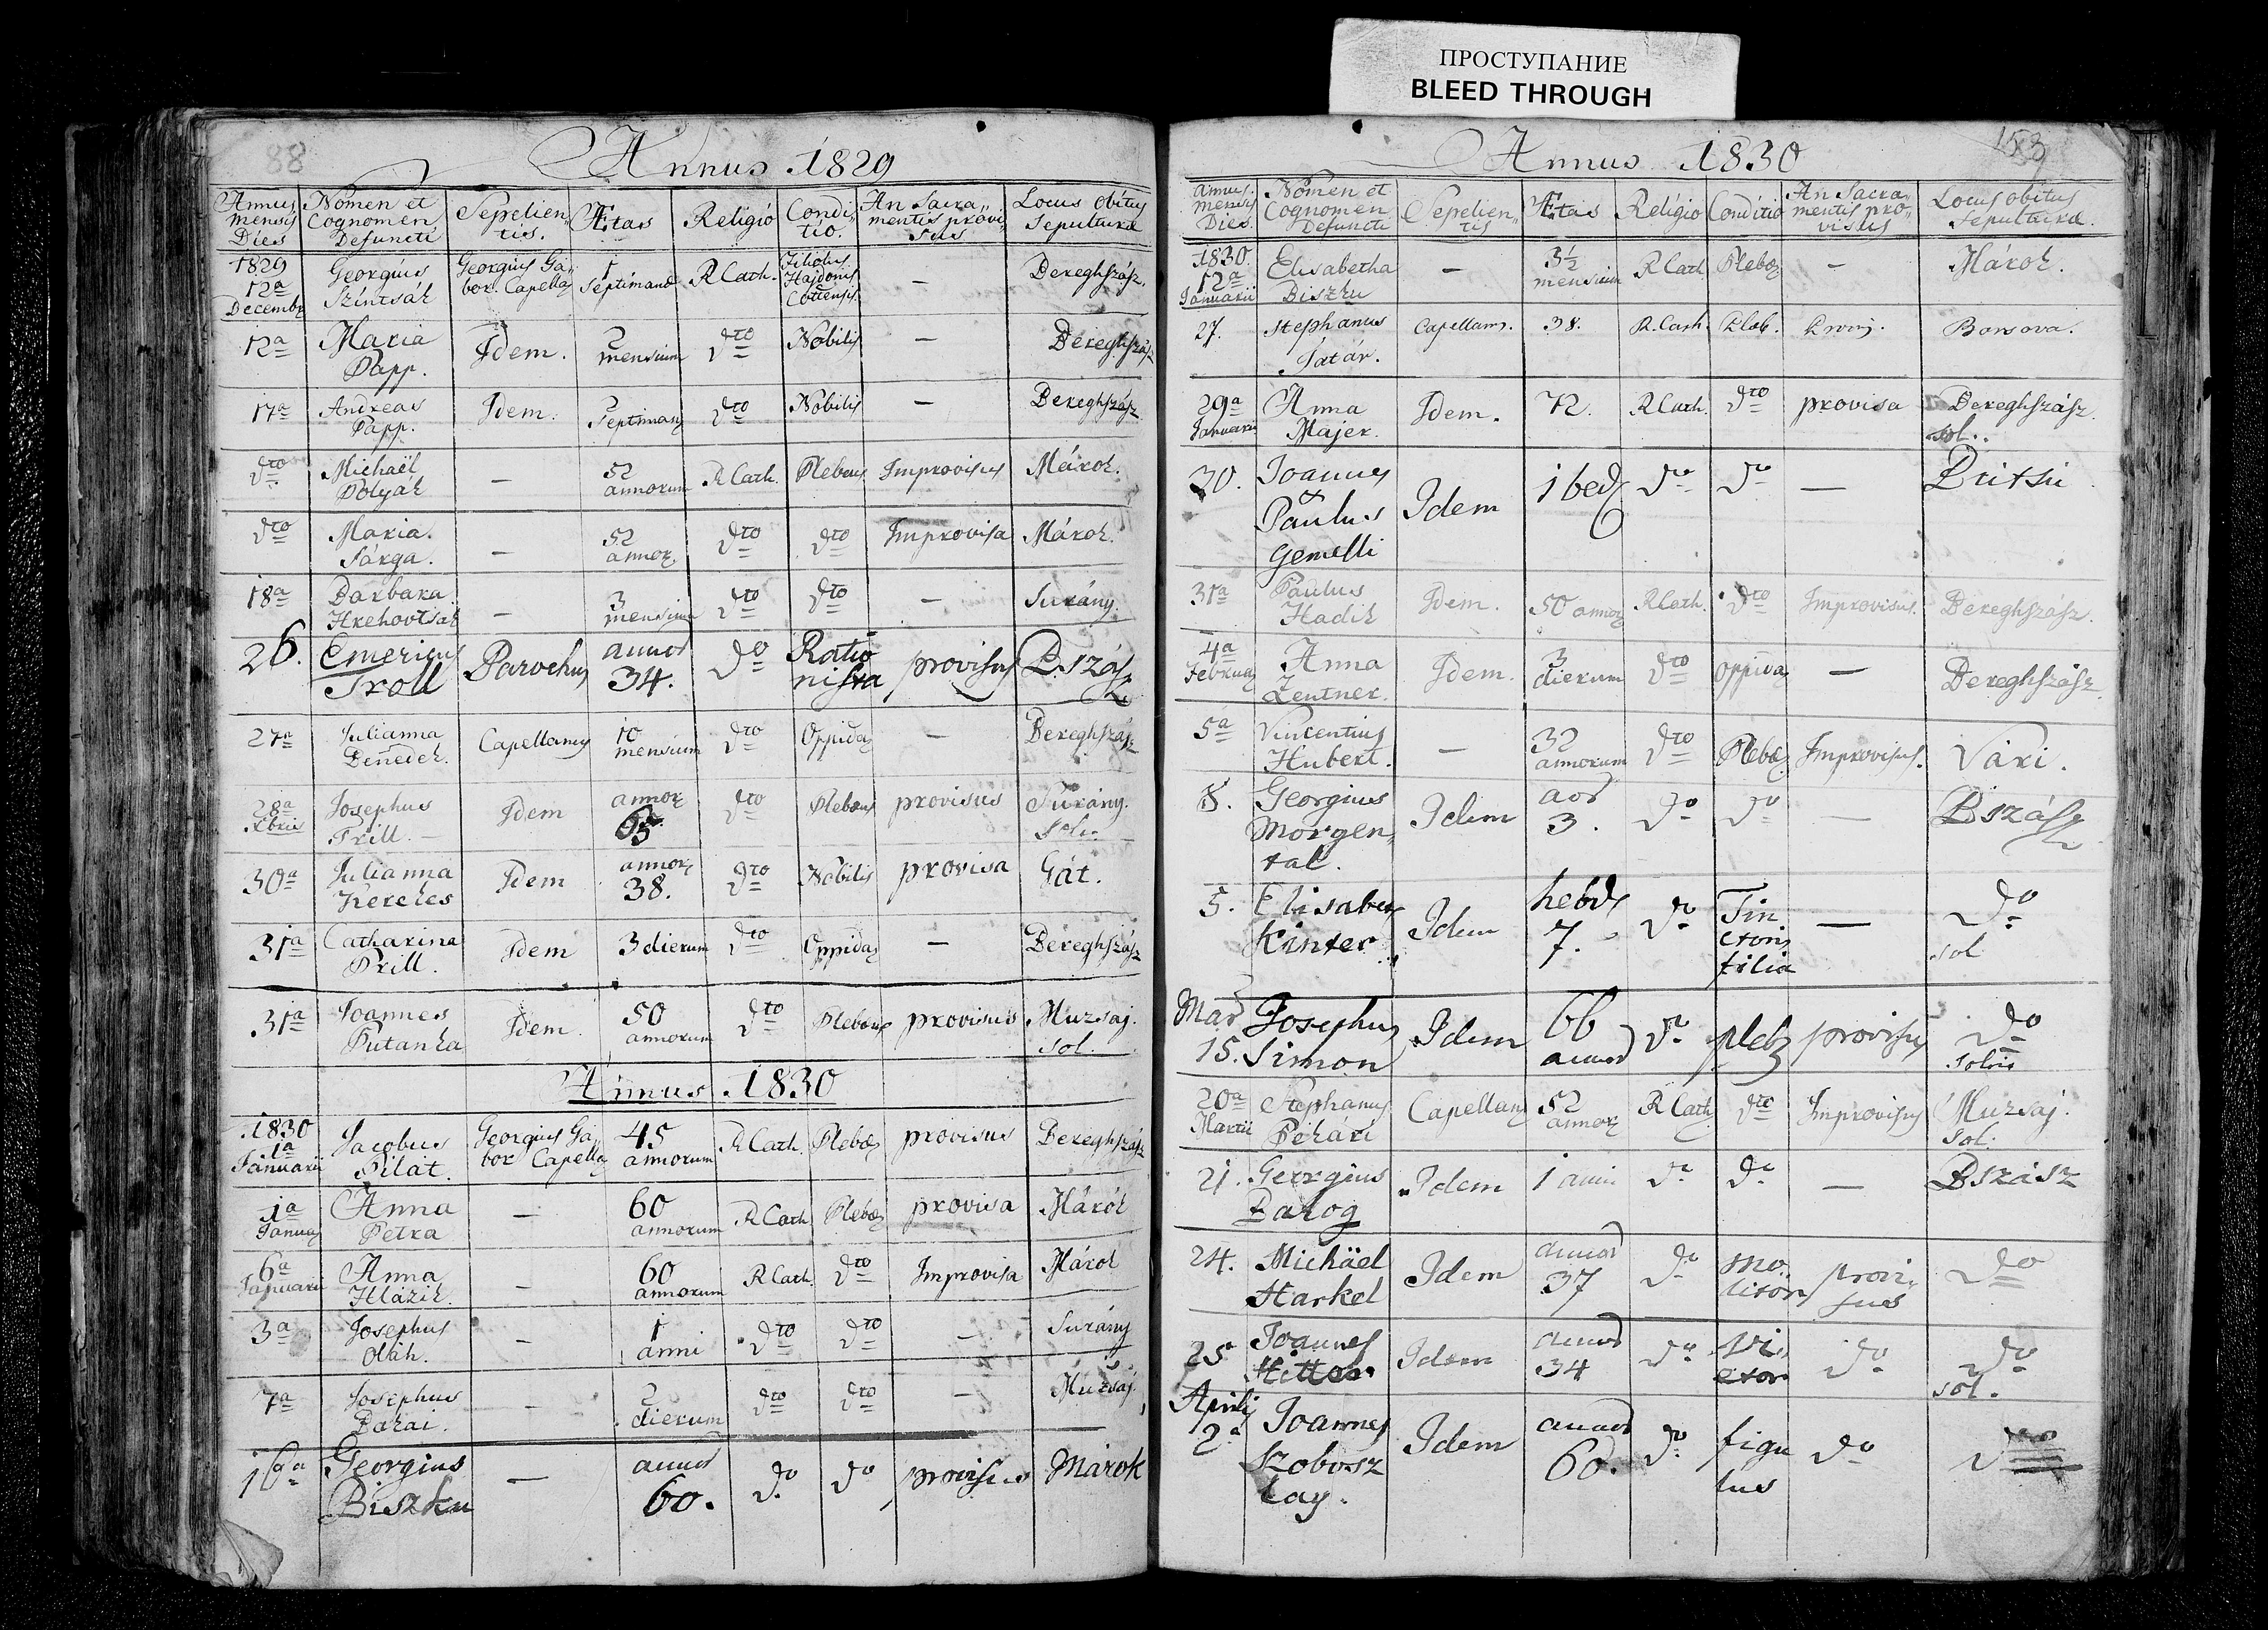 ПРОСТУПАНИЕ
BLEED THROUGH
88
Annus 1829
Annus mensis Dies | Nomen et Cognomen Defuncti | Sepelientis. | Ætas | Religio | Conditio. | An Sacramentis provisus | Locus obitus Sepulturæ
1829 12a Decembr | Georgius Színtsák | Georgius Gabor. Capella | 1 septimanæ | R Cath. | Filiolus Hajdonis Cottensis | — | Bereghszász.
12a | Maria Papp. | Idem. | 2 mensium | dto | Nobilis | — | Bereghszász
17a | Andreas Papp. | Idem. | 2 septiman | dto | Nobilis | — | Bereghszász
dto | Michaël Polyák | — | 52 annorum | R Cath. | Plebeus | Improvisus | Márok.
dto | Maria. Sárga. | — | 52 annor | dto | dto | Improvisa | Márok.
18a | Barbara Hrehovtsák | — | 3 mensium | dto | dto | — | Surány.
26. | Emericus Troll | Parochus | annor 34. | do | Rationista | provisus | B.szász
27a | Julianna Benedek. | Capellanus | 10 mensium | dto | Oppida | — | Bereghszász
28a Xbris | Josephus Trill. — | Idem | annor 65. | dto | Plebeus | provisus | Surány. Sol.
30a | Julianna Kerekes | Idem | annor 38. | dto | Nobilis | provisa | Gát.
31a | Catharina Prill. | Idem | 3 dierum | dto | Oppida | — | Bereghszász
31a | Joannes Putanka | Idem. | 50 annorum | dto | Plebeus | provisus | Muzsaj. Sol.
Annus 1830
1830 1a Januarii | Jacobus Pilát. | Georgius Gabor Capella | 45 annorum | R Cath. | Plebe | provisus | Bereghszász
1a Janua | Anna Petra | — | 60 annorum | R Cath | Plebe | provisa | Márók
6a Januarii | Anna Hlazik. | — | 60 annorum | R Cath. | dto | Improvisa | Márok
3a | Josephus Oláh. | — | 1 anni | dto | dto | — | Surány
7a | Josephus Darai. | — | 2 dierum | dto | dto | — | Muzsaj.
16a | Georgius Biszku | — | annor 60. | do | do | provisus | Márok
153
Annus 1830
Annus. mensis Dies. | Nomen et Cognomen Defuncti | Sepelientis | Ætas | Religio | Conditio | An Sacramentis provisus | Locus obitus Sepulturæ.
1830. 12a Januarii | Elisabetha Biszku | — | 3½ mensium | R Cath | Plebe | — | Márok.
27. | Stephanus Satár. | Capellanus. | 38. | R. Cath. | Pleb. | Provis. | Borsova.
29a Januarii | Anna Majer. | Idem. | 72. | R Cath. | dto | provisa | Bereghszász. sol.
30. | Joannes & Paulus Gemelli | Idem | 1 hed | do | do | — | Butsu
31a | Paulus Hadik | Idem. | 50 annor | R Cath. | dto | Improvisus. | Bereghszász.
4a Februa | Anna Zentner. | Idem. | 3 dierum | dto | Oppida | — | Bereghszász
5a | Vincentius Hubert. | — | 32 annorum | dto | Plebe | Improvisus. | Vári.
8. | Georgius Morgental. | Idem | aor 3. | do | do | — | Bszász
5. | Elisabe Kinter | Idem | hebd 7. | do | Tinctoris filia | — | do sol
Mar 15. | Josephus Simon | Idem | 66 annor | do | pleb | provisus | do Solvit
20a Martii | Stephanus Pekári | Capellan | 52 annor | R Cath | dto | Improvisus | Muzsaj. Sol.
21. | Georgius Balog | Idem | 1 anni | do | do | — | Bszász
24. | Michäel Harkel | Idem | annor 37 | do | molitor | provisus | do
25 | Joannes Hitter | Idem | annor 34 | do | vietor | do | do sol.
Aprilis 2a | Joannes Szoboszlay. | Idem | annor 60. | do | figulus | do | do